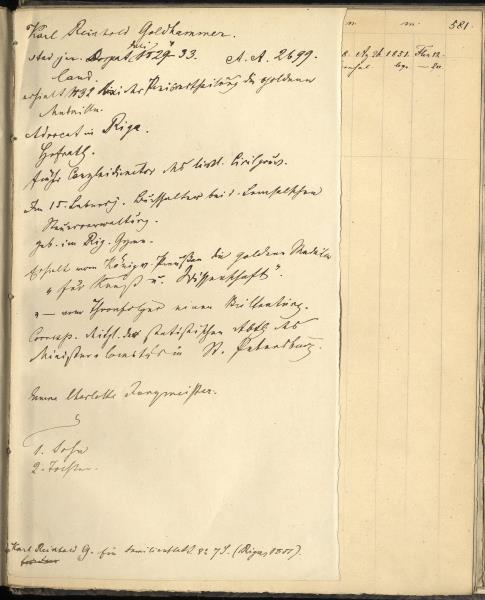 Karl Reinhold Goldhammer.
stud. jur. Dorpat 1829-33. A.A. 2699.
land.
erhielt 1832 bei der Preisvertheilung die goldene
Medaille.
Advocat in Riga.
Hofrath.
früher Canzleidirector des livl. Civilgouv.
Im 15. Lebensj. Buchhalter bei d. Lemsalschen
Steuerverwaltung.
geb. im Rig. Gymn.
Erhielt vom König v. Preußen die goldene Medaille
"für Kunst u. Wissenschaft".
" — vom Thronfolger einen Brillantring.
Corresp. Mitgl. der statistischen Abth. des
Ministercomités in St. Petersburg.
Charlotte Jungmeister.
1. Sohn
2. Tochter.
Karl Reinhold G. Ein Familienblatt 82 7 S. (Riga, 1851).
n. m. 581.
1851.